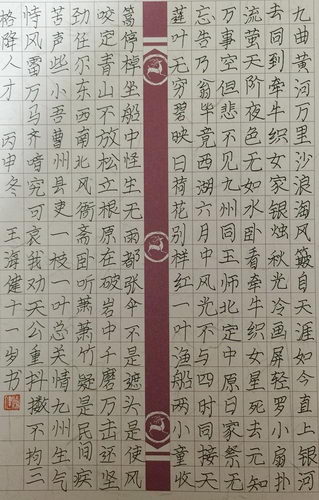 九曲黄河万里沙浪淘风簸自天涯如今直上银河
去同到牵牛织女家银烛秋光冷画屏轻罗小扇扑
流萤天阶夜色凉如水卧看牵牛织女星死去元知
万事空但悲不见九州同王师北定中原日家祭无
忘告乃翁毕竟西湖六月中风光不与四时同接天
莲叶无穷碧映日荷花别样红一叶渔船两小童收
篙停棹坐船中怪生无雨都张伞不是遮头是使风
咬定青山不放松立根原在破岩中千磨万击还坚
劲任尔东西南北风衙斋卧听萧萧竹疑是民间疾
苦声些小吾曹州县吏一枝一叶总关情九州生气
恃风雷万马齐喑究可哀我劝天公重抖擞不拘一
格降人才 丙申冬 王海健十一岁书